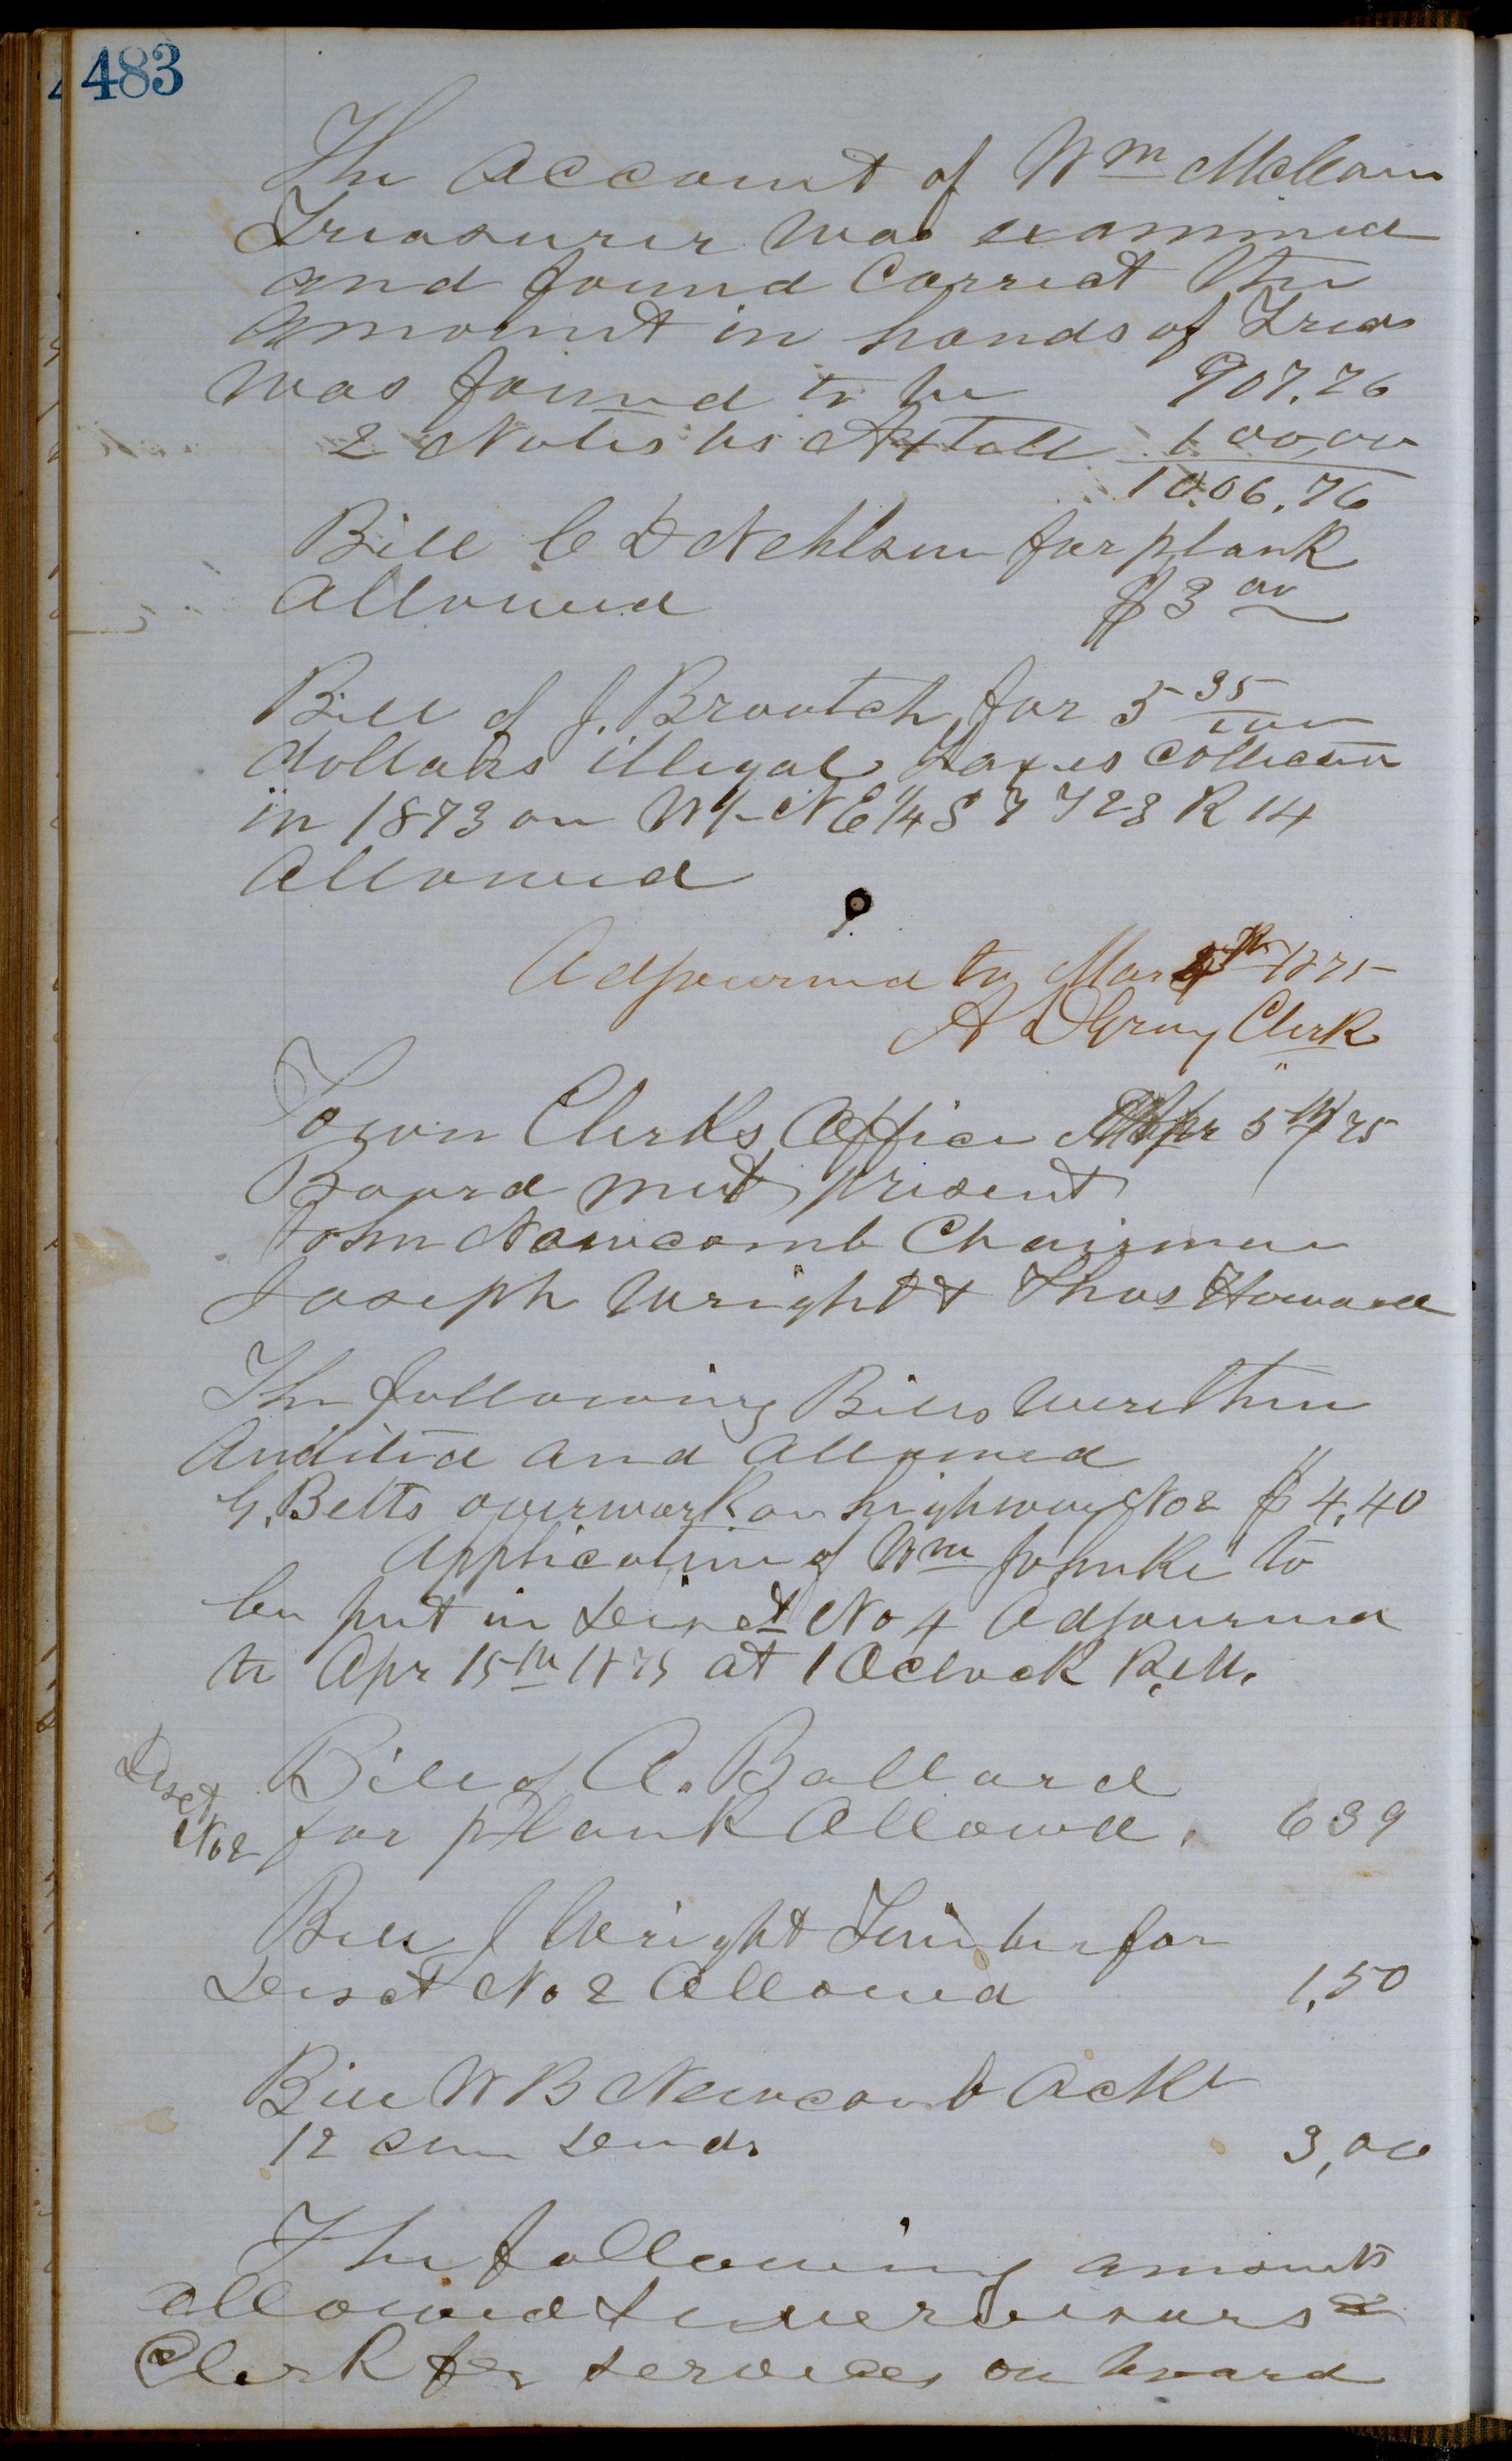 483
The Account of Wm McCain
Treasurer was examined
and found Correct The
amount in hands of Treas
was found to be 907.76
2 Notes vs 100,00
1006.76
Bill C D Nehlsen for plank
Allowed $3 00
Bill of J. Brootch for 5 35/100
dollars illegal taxes collected
in 1873 on W 1/2 NE 1/4 S 7 T 28 R 14
Allowed
Adjourned to Mar 1875
A D Gray Clerk
Town Clerks Office Apr 5th/75
Board met present
John Newcomb Chairman
Joseph Wright & Thos Howard
The following Bills were then
Audited and Allowed
G. Betts overwork on highway No 2 $ 4,40
Application of Wm Johnke to
be put in Disct No 4 Adjourned
to Apr 15th 1875 at 1 Oclock P.M.
Bill of A. Ballard
Disct No 2
for plank Allowed. 639
Bill J Wright Timber for
Disct No 2 Allowed 1,50
Bill W B Newcomb
12 3,00
The following amounts
allowed Supervisors &
Clerk for services on board